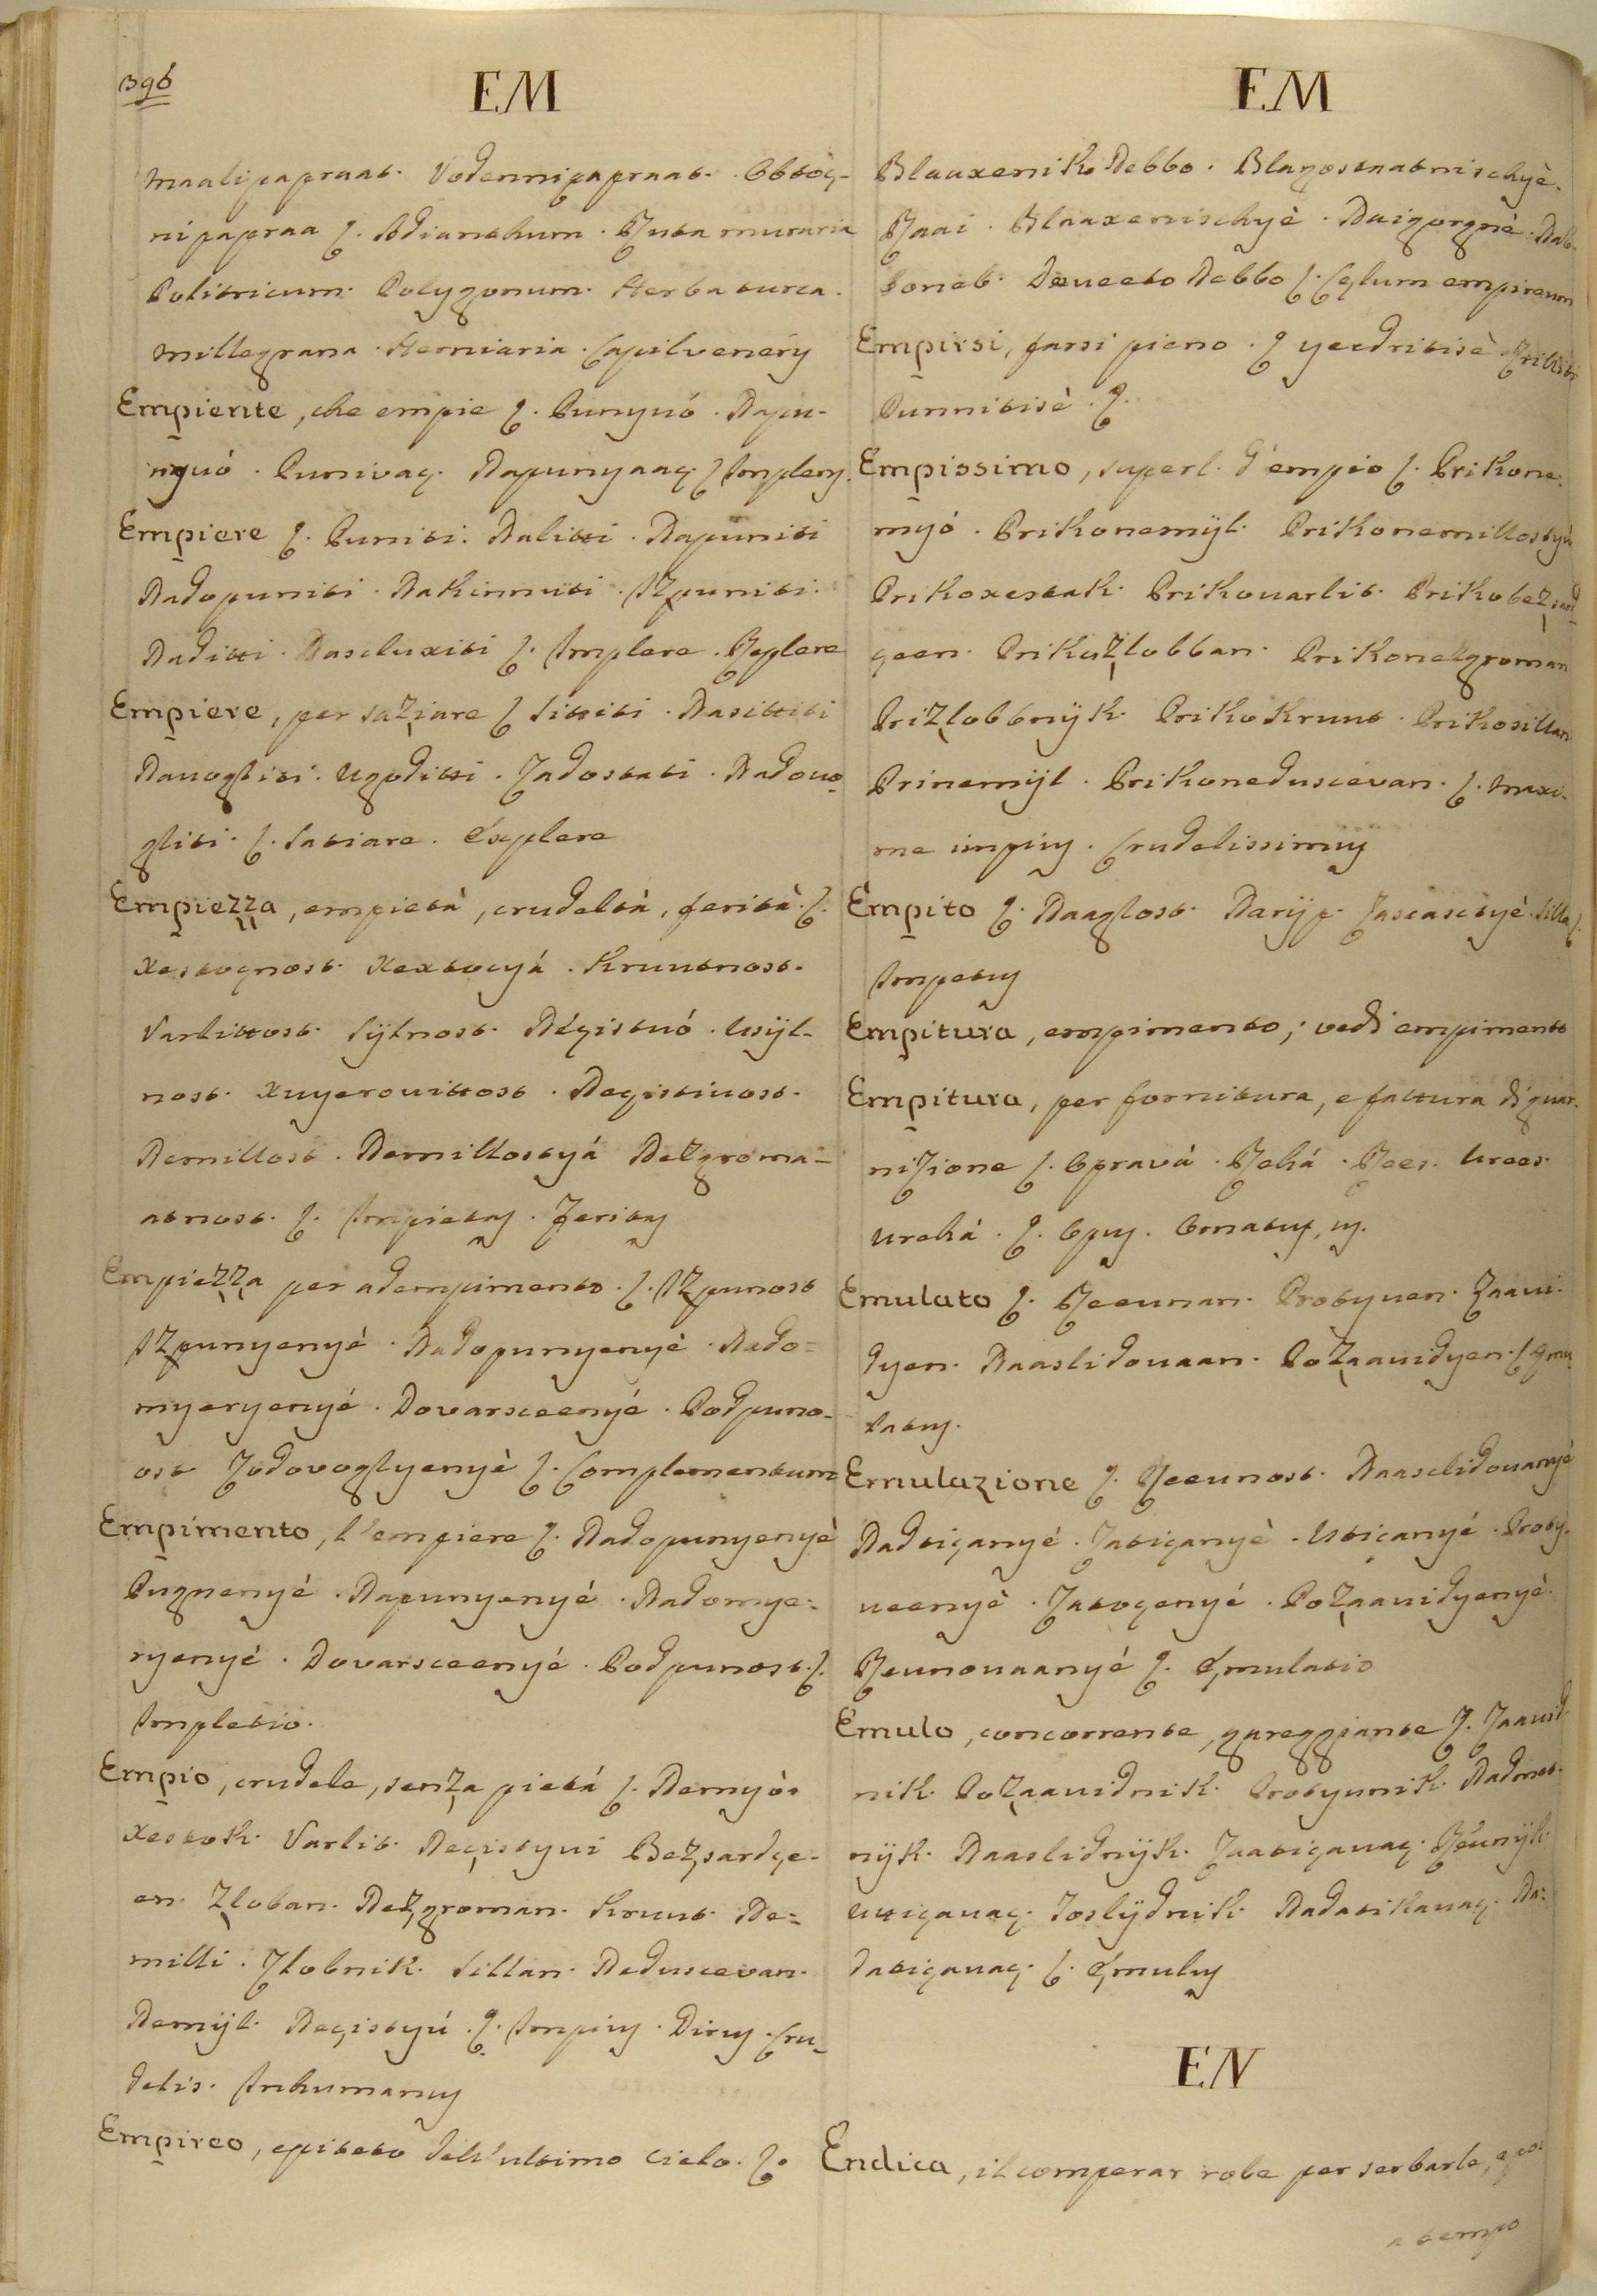 396
EM
maalipapraat. Vodennipapraat. Obtoç-
nipapraa ç. Adianthum. Ruta muraria
Politricum. Polygonum. Herba turca.
millegrana. Herniaria. Capilvenery
Empiente, che empie ç. Punyuó. Napu-
nyuó. Punivaç. Napunyaaç ç Impleny.
Empiere ç. Puniti. Nalitti. Napuniti
Nadopuniti. Nakinnuti. Izpuniti.
Naditti. Nascluxiti ç. Implere. Replere
Empiere, per saziare ç Sittiti. Nasittiti
Navogliti. Ugoditti. Zadostati. Nadovo-
gliti. ç. Satiare. Explere
Empiezza, empietà, crudeltà, ferità. ç.
Xestoçnost. Xextoçyá. Kruutnost.
Varlittost. Sýlnost. Néçistuó. Usýl-
nost. Xuyerovittost. Neçistivost.
Nemillost. Nemillostyá Nezgroma-
atnost. ç. Impietas. Feritas
Empiezza per adempimento. ç. Izpunost
Izpunyenyé. Nadopunyenyé. Nado=
myeryenyé. Dovarsceenyé. Podpuno-
ost Zodovoglyenyè ç. Complementum
Empimento, l'empiere ç. Nadopunyenyè
Pugnenyé. Napunyenyé. Nadomye=
ryenyé. Dovarsceenyé. Podpunost. ç.
Impletio.
Empio, crudele, senza pietá ç. Nemyó.
Xestok. Varlit. Neçistyui Bezsardçe-
en. Zloban. Nezgroman. Kruut. Ne=
milli. Zlobnik. Sillan. Neduscevan.
Nemýl. Neçistyú. ç. Impius. Dirus. Cru-
delis. Inhumanus
Empireo, epiteto dell'ultimo cielo. ç.
EM
Blaaxenik Nebbo. Blagostaatnischyè.
Raai. Blaaxenischyè. Naigorgnè. Nab-
Soneb. Deveeto Nebbo ç. Cęlum empireum
Empirsi, farsi pieno. ç yeedritisè.
Punnitisè. ç.
Empissimo, superl. d'empio ç. Prikone-
myó. Prikonemýl. Prikonemillostyù
Prikoxestak. Prikovarlit. Prikobezsard
çeen. Prikozlobban. Prikonezgroman
Prizlobbnýk. Prikokruut. Prikosillan
Prinemýl. Prikoneduscevan. ç. Maxi-
me impius. Crudelissimus
Empito ç. Naaglost. Narýp. Zascasctyé. Silla ç.
Impetus
Empitura, empimento; vedi empimento
Empitura, per fornitura, e fattura di guar-
nizione ç. Opravá. Rehá. Rees. Urees.
Urehá. ç. Opus. Ornatus, us.
Emulato ç. Reeunan. Protyuen. Zaavi-
dyen. Naaslidovaan. Pozaavidyen. ç Ęmu-
latus.
Emulazione ç. Reeunost. Naasclidovanyé
Nadtiçanyé. Zatiçanyè. Utiçanyé. Proty-
ueenyè. Zatoçenyé. Pozaavidyenyè.
Reunovaanyé ç. Ęmulatio
Emulo, concorrente, gareggiante ç. Zaavid-
nik. Pozaavidnik. Protyunik. Nadmet-
nýk. Naaslidnýk. Zaatiçavaç. Réunýk.
Uttiçavaç. Zoslýdnik. Nadatikavaç. Na=
datiçavaç. ç. Ęmulus
EN
Endica, il comperar robe per serbarle, e poi
a tempo